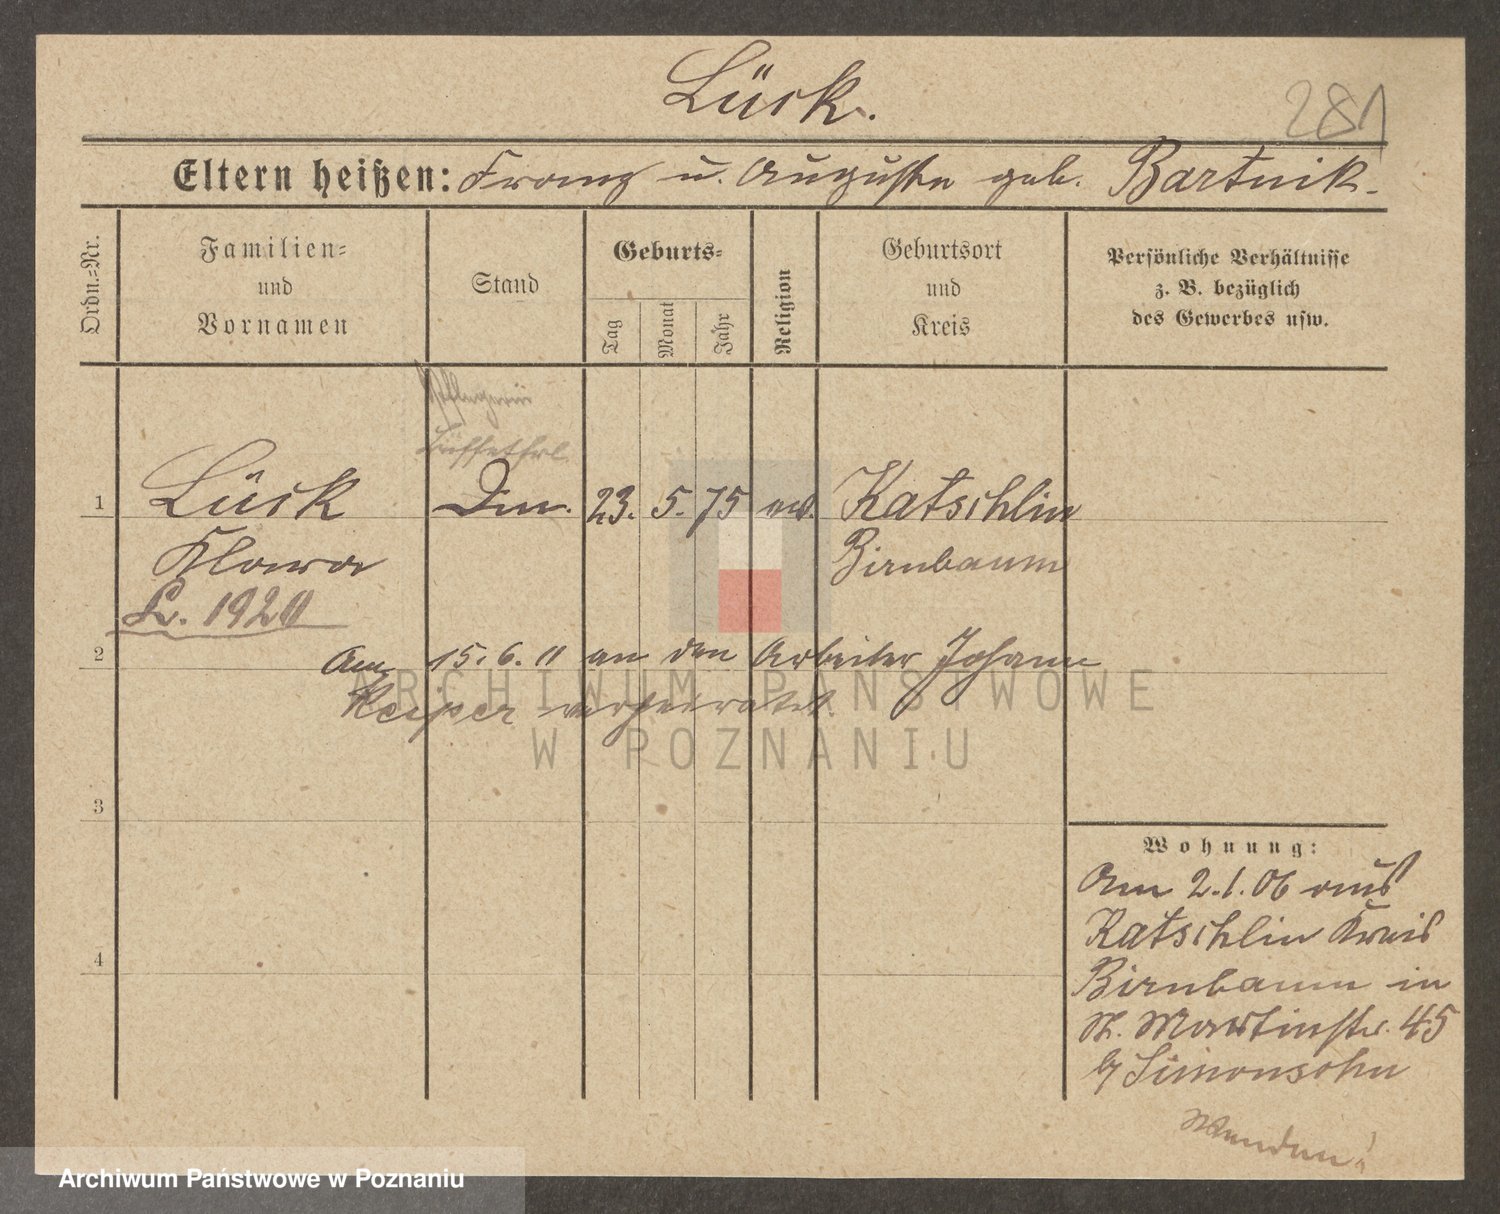 Lück.
281
Eltern heißen: Franz u. Auguste geb. Bartnik.
Ordn.=Nr.
Familien=
und
Vornamen
Stand
Geburts=
Tag
Monat
Jahr
Religion
Geburtsort
und
Kreis
Persönliche Verhältnisse
z. B. bezüglich
des Gewerbes usw.
Pflegerin
Büffetfrl.
1 Lück 23. 5. 75 Katschlin
Klara Birnbaum
L. 1920
2 Am 15. 6. 11 an den Arbeiter Johann
Keiper verheiratet.
3
4
Wohnung:
Am 2.1.06 aus
Katschlin Kreis
Birnbaum in
St. Martinstr. 45
b/ Simonsohn
Wenden!
ARCHIWUM PAŃSTWOWE
W POZNANIU
Archiwum Państwowe w Poznaniu